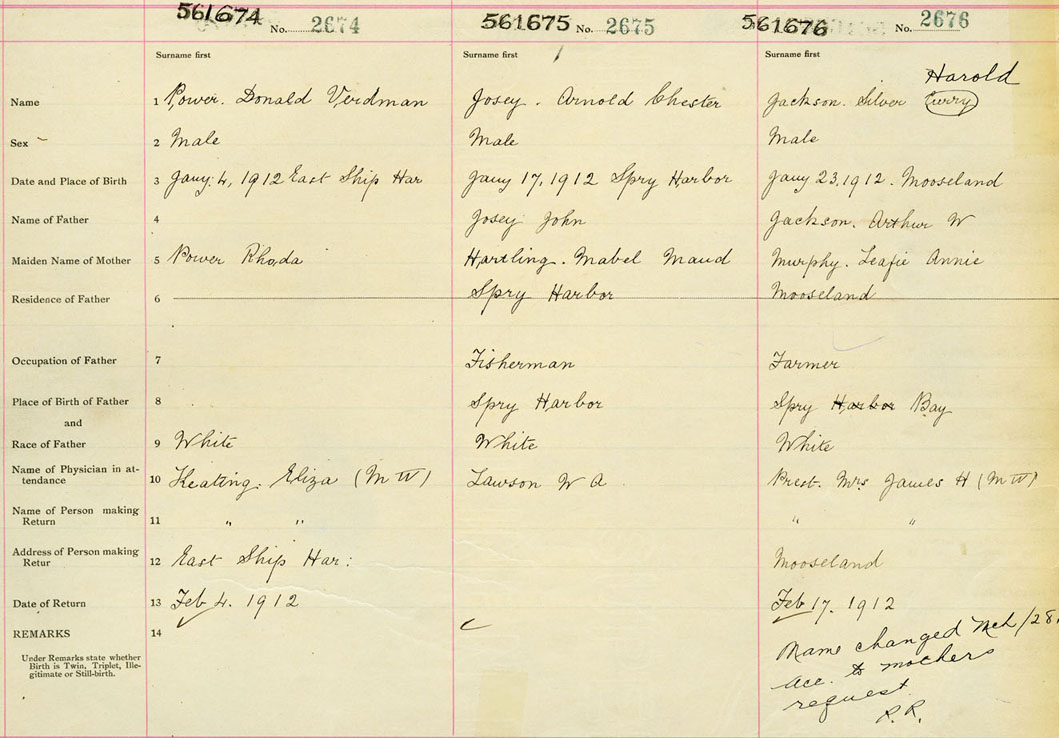 561674 No. 2674 561675 No. 2675 561676 No. 2676
Surname first Surname first Surname first
Harold
Name 1 Power. Donald Verdman Josey. Arnold Chester Jackson. Silver Curry
Sex 2 Male Male Male
Date and Place of Birth 3 Jany. 4, 1912 East Ship Har Jany 17, 1912 Spry Harbor Jany 23, 1912. Mooseland
Name of Father 4 Josey John Jackson. Arthur W
Maiden Name of Mother 5 Power Rhoda Hartling. Mabel Maud Murphy. Leafie Annie
Residence of Father 6 Spry Harbor Mooseland
Occupation of Father 7 Fisherman Farmer
Place of Birth of Father 8 Spry Harbor Spry Harbor Bay
and
Race of Father 9 White White White
Name of Physician in at-
tendance 10 Keating. Eliza (M W) Lawson W A Prest. Mrs James H (M W)
Name of Person making
Return 11 " " " "
Address of Person making
Retur 12 East Ship Har: Mooseland
Date of Return 13 Feb 4. 1912 Feb 17. 1912
REMARKS 14
Under Remarks state whether
Birth is Twin, Triplet, Ille-
gitimate or Still-birth.
Name changed Mch/28.
acc. to mothers
request
R.R.